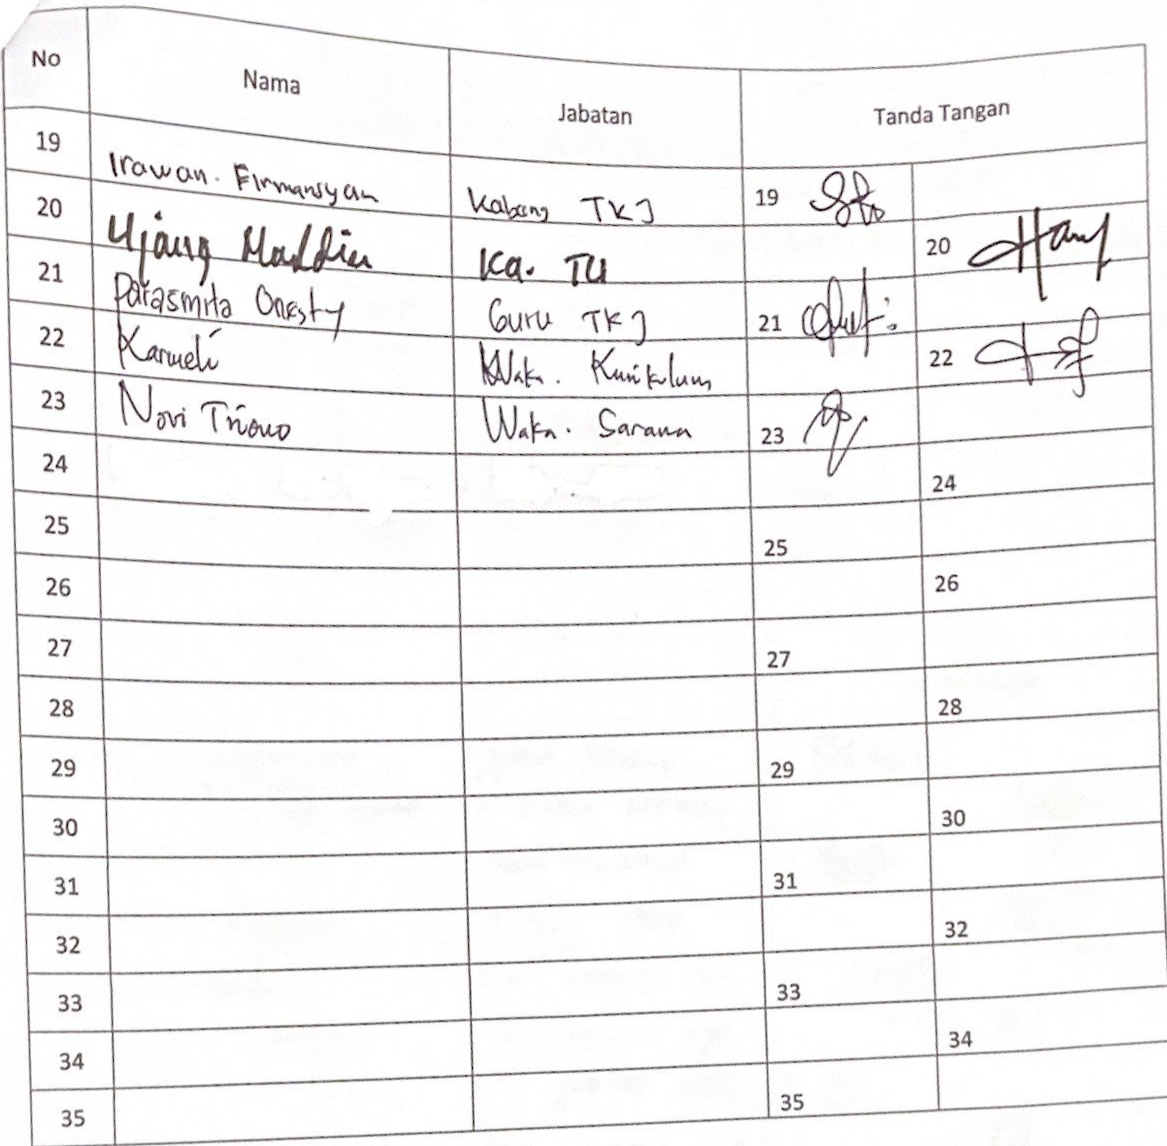 No Nama Jabatan Tanda Tangan
19 Irawan. Firmansyah Kabeng TKJ 19
20 Ujang Maddin Ka. TU 20
21 Parasmita Onesty Guru TKJ 21
22 Karweti Waka. Kurikulum 22
23 Novi Triono Waka. Sarana 23
24 24
25 25
26 26
27 27
28 28
29 29
30 30
31 31
32 32
33 33
34 34
35 35